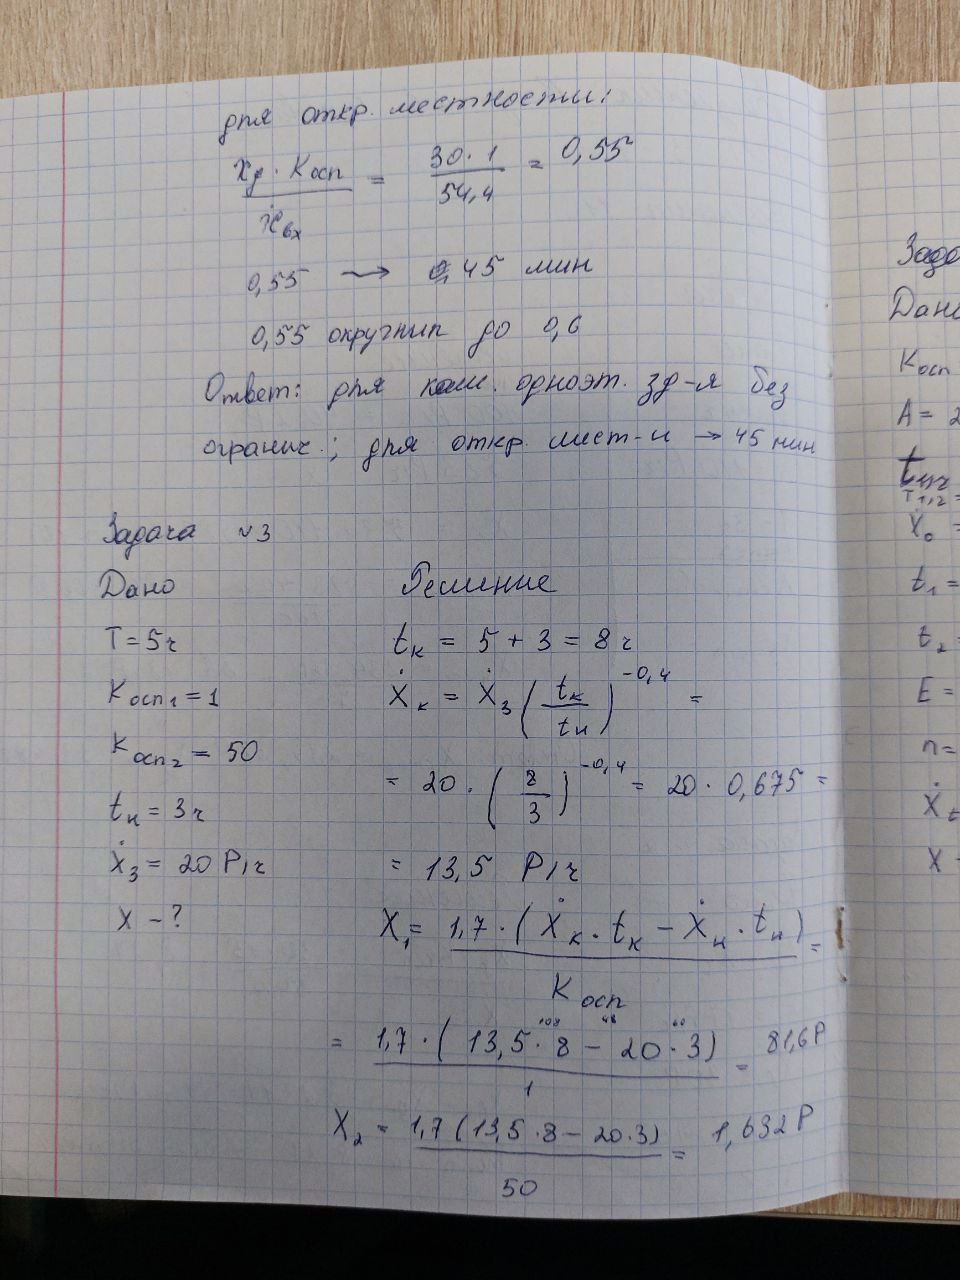 для откр. местности:
Xд · Kосп / Ẋвх = 30 · 1 / 54,4 = 0,55
0,55 → 45 мин
0,55 округлил до 0,6
Ответ: для кам. одноэт. зд-я без
огранич.; для откр. мест-и → 45 мин
Задача №3
Дано
T = 5 ч
Kосп1 = 1
Kосп2 = 50
tн = 3 ч
Ẋ3 = 20 Р/ч
X – ?
Решение
tк = 5 + 3 = 8 ч
Ẋк = Ẋ3 (tк / tн)^-0,4 =
= 20 · (8 / 3)^-0,4 = 20 · 0,675 =
= 13,5 Р/ч
X1 = 1,7 · (Ẋк · tк – Ẋн · tн) / Kосп =
108 48 60
= 1,7 · (13,5 · 8 – 20 · 3) / 1 = 81,6 Р
X2 = 1,7 (13,5 · 8 – 20 · 3) / 50 = 1,632 Р
Зада
Дано
Kосп
A = 2
Ẋ0 =
t1 =
t2 =
E =
n =
Ẋt
X